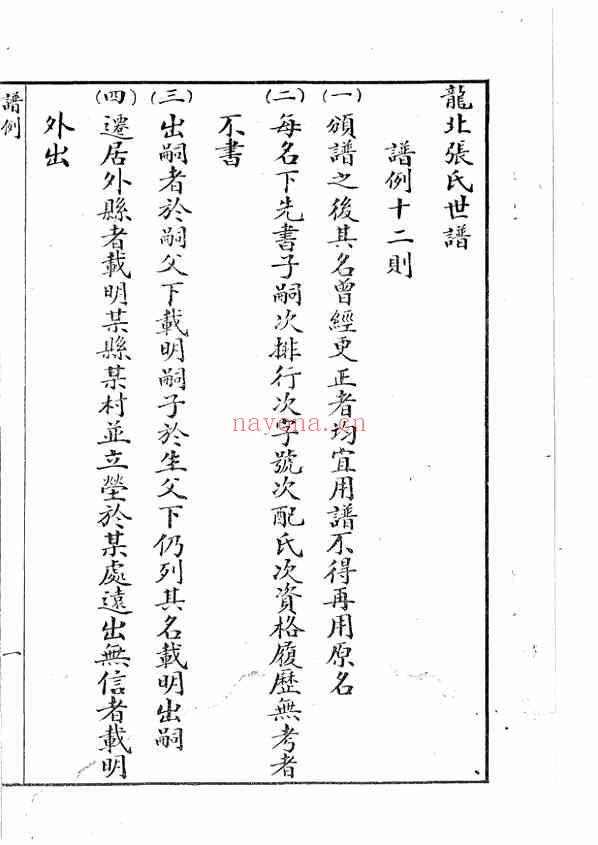 龍北張氏世譜
譜例十二則
(一)頒譜之後其名曾經更正者均宜用譜不得再用原名
(二)每名下先書子嗣次排行次字號次配氏次資格履歷無考者
不書
(三)出嗣者於嗣父下載明嗣子於生父下仍列其名載明出嗣
(四)遷居外縣者載明某縣某村並立塋於某處遠出無信者載明
外出
譜例
一
nayona.cn